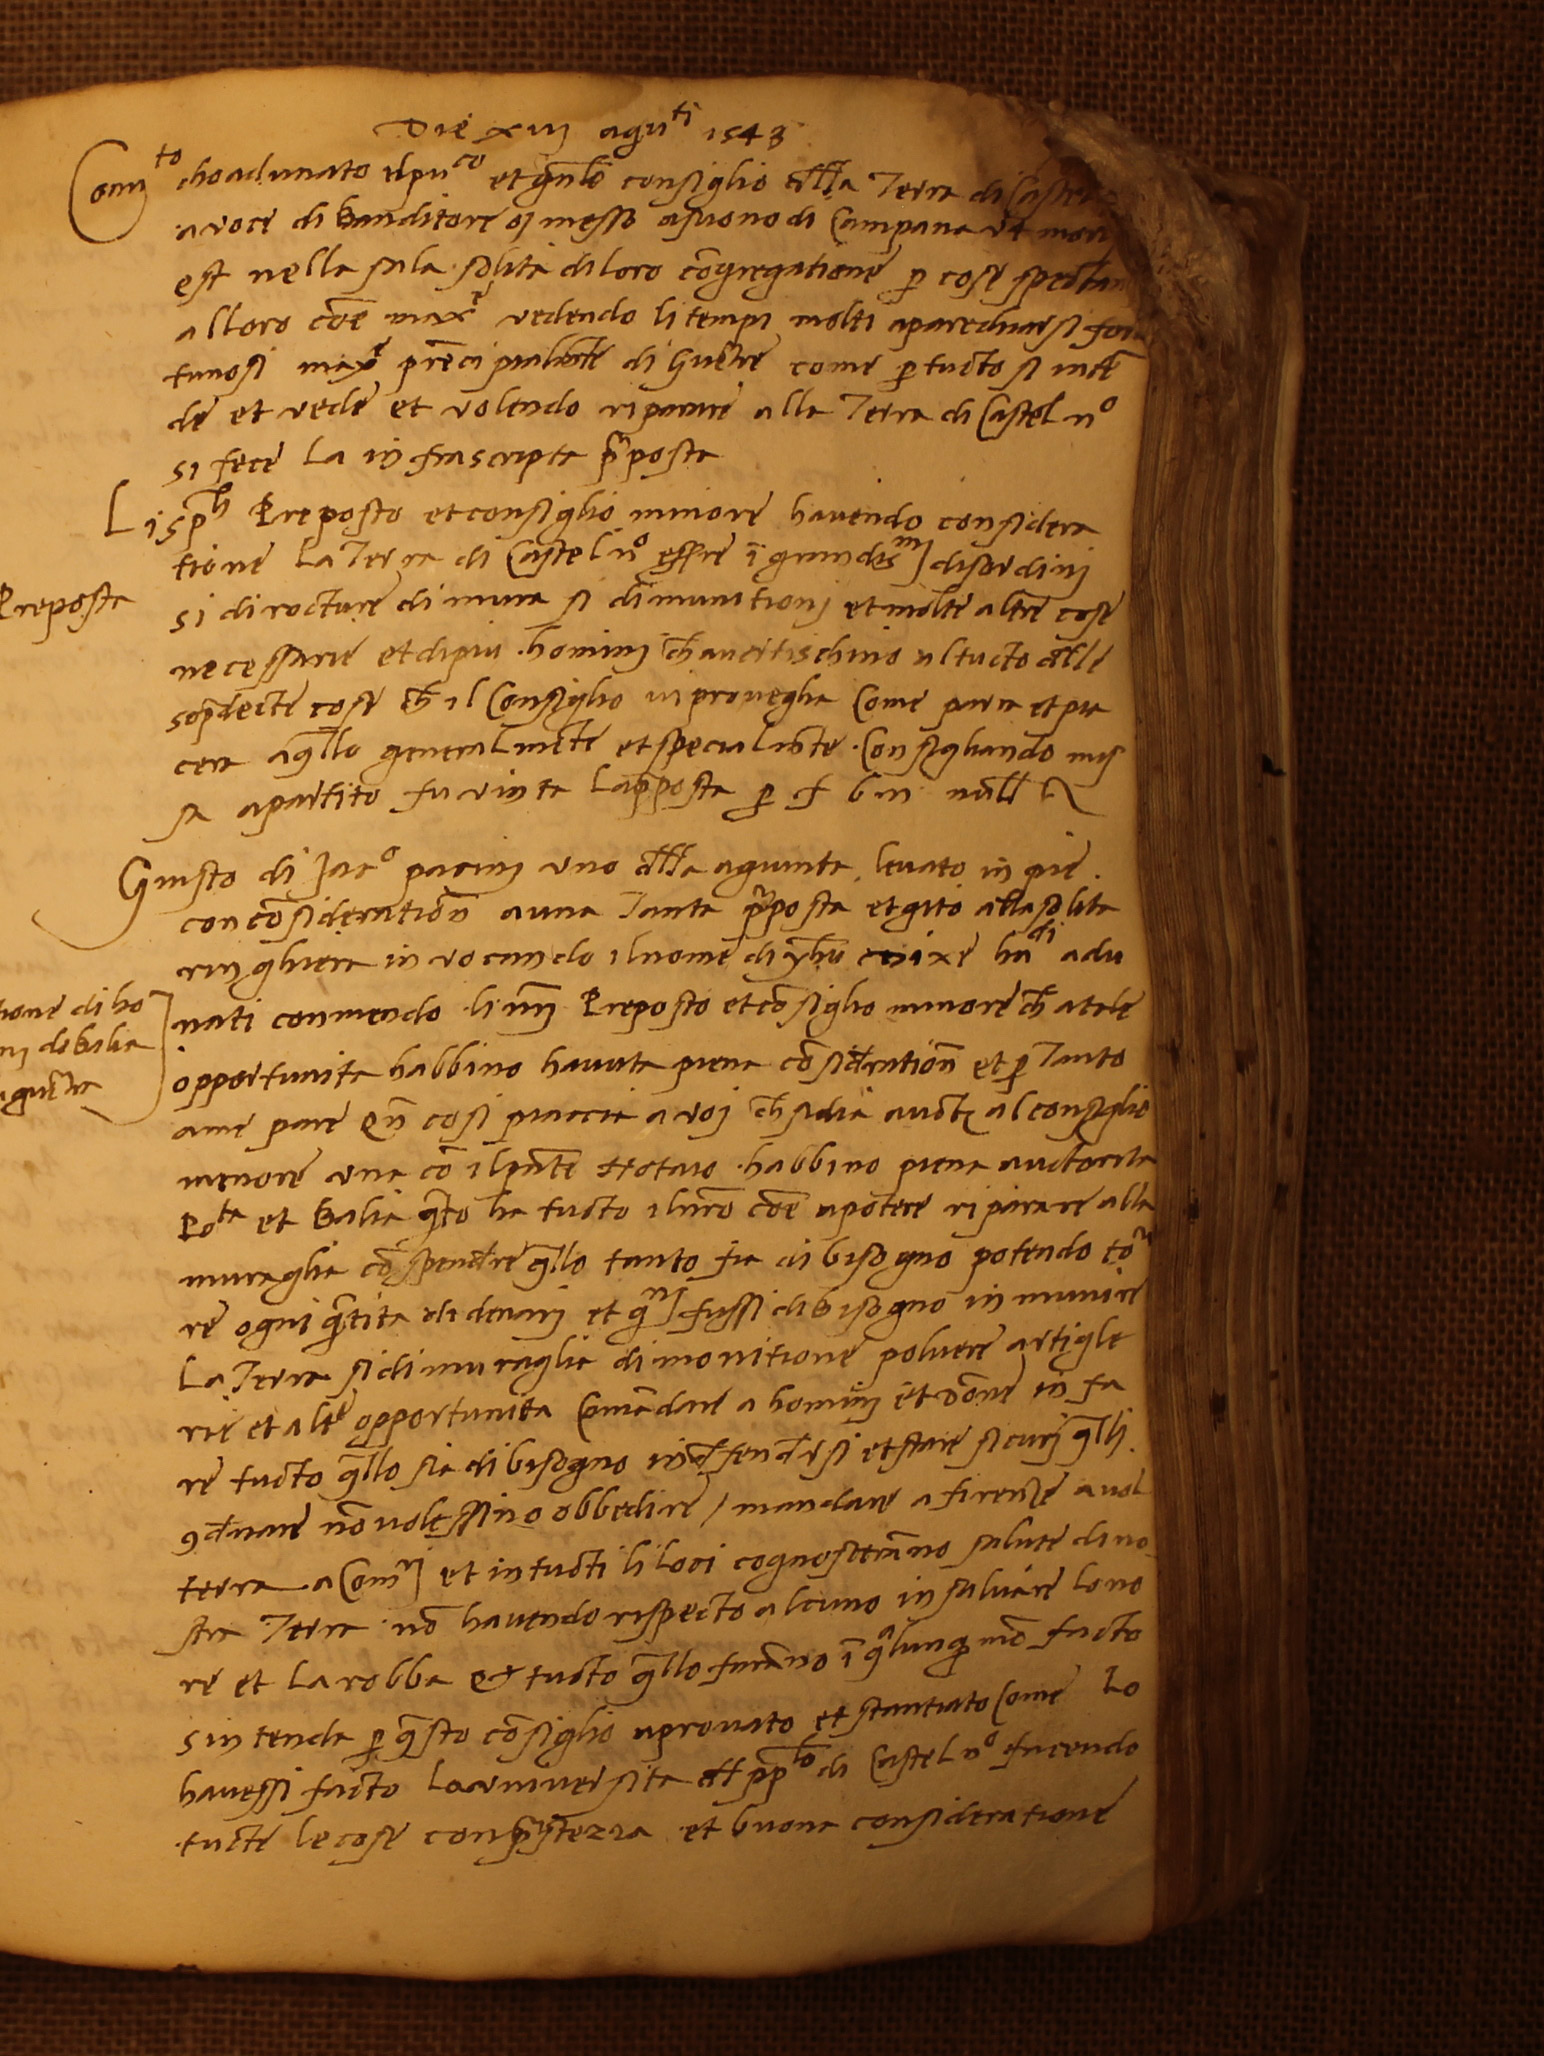 Die xiij agu^ti 1543
Conu^to choadunato il pu^co et gnle consiglio dlla Terra di Castel
a voce di banditore o messo a suono di Campana ut mori
est nella sala solita di loro cõgregatione p cose spectan
alloro cõe max^e vedendo li tempi molti aparechiarsi for
tunosi max^e precipualmte di guerre come p tucto si inte
de et vede et volendo riparare alla Terra di Castel n^o
si fece La infrascripta pposta
Li sp^li Preposto et consiglio minore havendo considera
tione La Terra di Castel n^o essre ĩ grandis^mi disordinj
Preposta
si di rocture di mura si di munitionj et molte altre cose
necessarie et di piu hominj ch avertischino al tucto delle
sopdecte cose ch il Consiglio vi proveghа Come parra et pia
cera a qllo generalmte et specialmte Consigliando mes
sa a partito fu vinta La pposta p f bⁿ null^a
Giusto di Jac^o pacinj uno dlla agiunta levato in pie
con cõsideration a una Tanta pposta et gito alla solita
ringhiera in vocando il nome di yhu adu
nati conmendo li Preposto et cõsiglio minore ch a tale
tione di ho
nj di balia
guerra
opportunita habbino havuta piena cõsideration et p Tanto
a me pare qn cosi piaccia a voj ch si dia auct^a al consiglio
minore una cõ il pnte Notaio habbino piena auctorita
Po^ta et Balia qto ha tucto il nro cõe a potere riparare alla
muraglia cõ spendere qllo tanto fia di bisogno potendo to^r
re ogni qtita di denarj et fussi di bisogno in munire
La Terra si di muraglia di monitione polvere artigle
rie et alt^e opportunita Comãdare a hominj et dõne in fa
re tucto qllo sia di bisogno in difendersi et stare sicurj qllj
nõ volessino obbedire / mandare a firenze a vol
terra a Com^rj et in tucti li loci cognosceranno salute di no
stra Terra nõ havendo rispecto alcuno in salvare lono
re et La robba et tucto qllo farãno ĩ qlunq mõ facto
sintenda p qsto cõsiglio aprovato et stantiato Come Lo
havessi facto La universita dl pp^lo di Castel n^o facendo
tucte le cose con psteza et buona consideratione